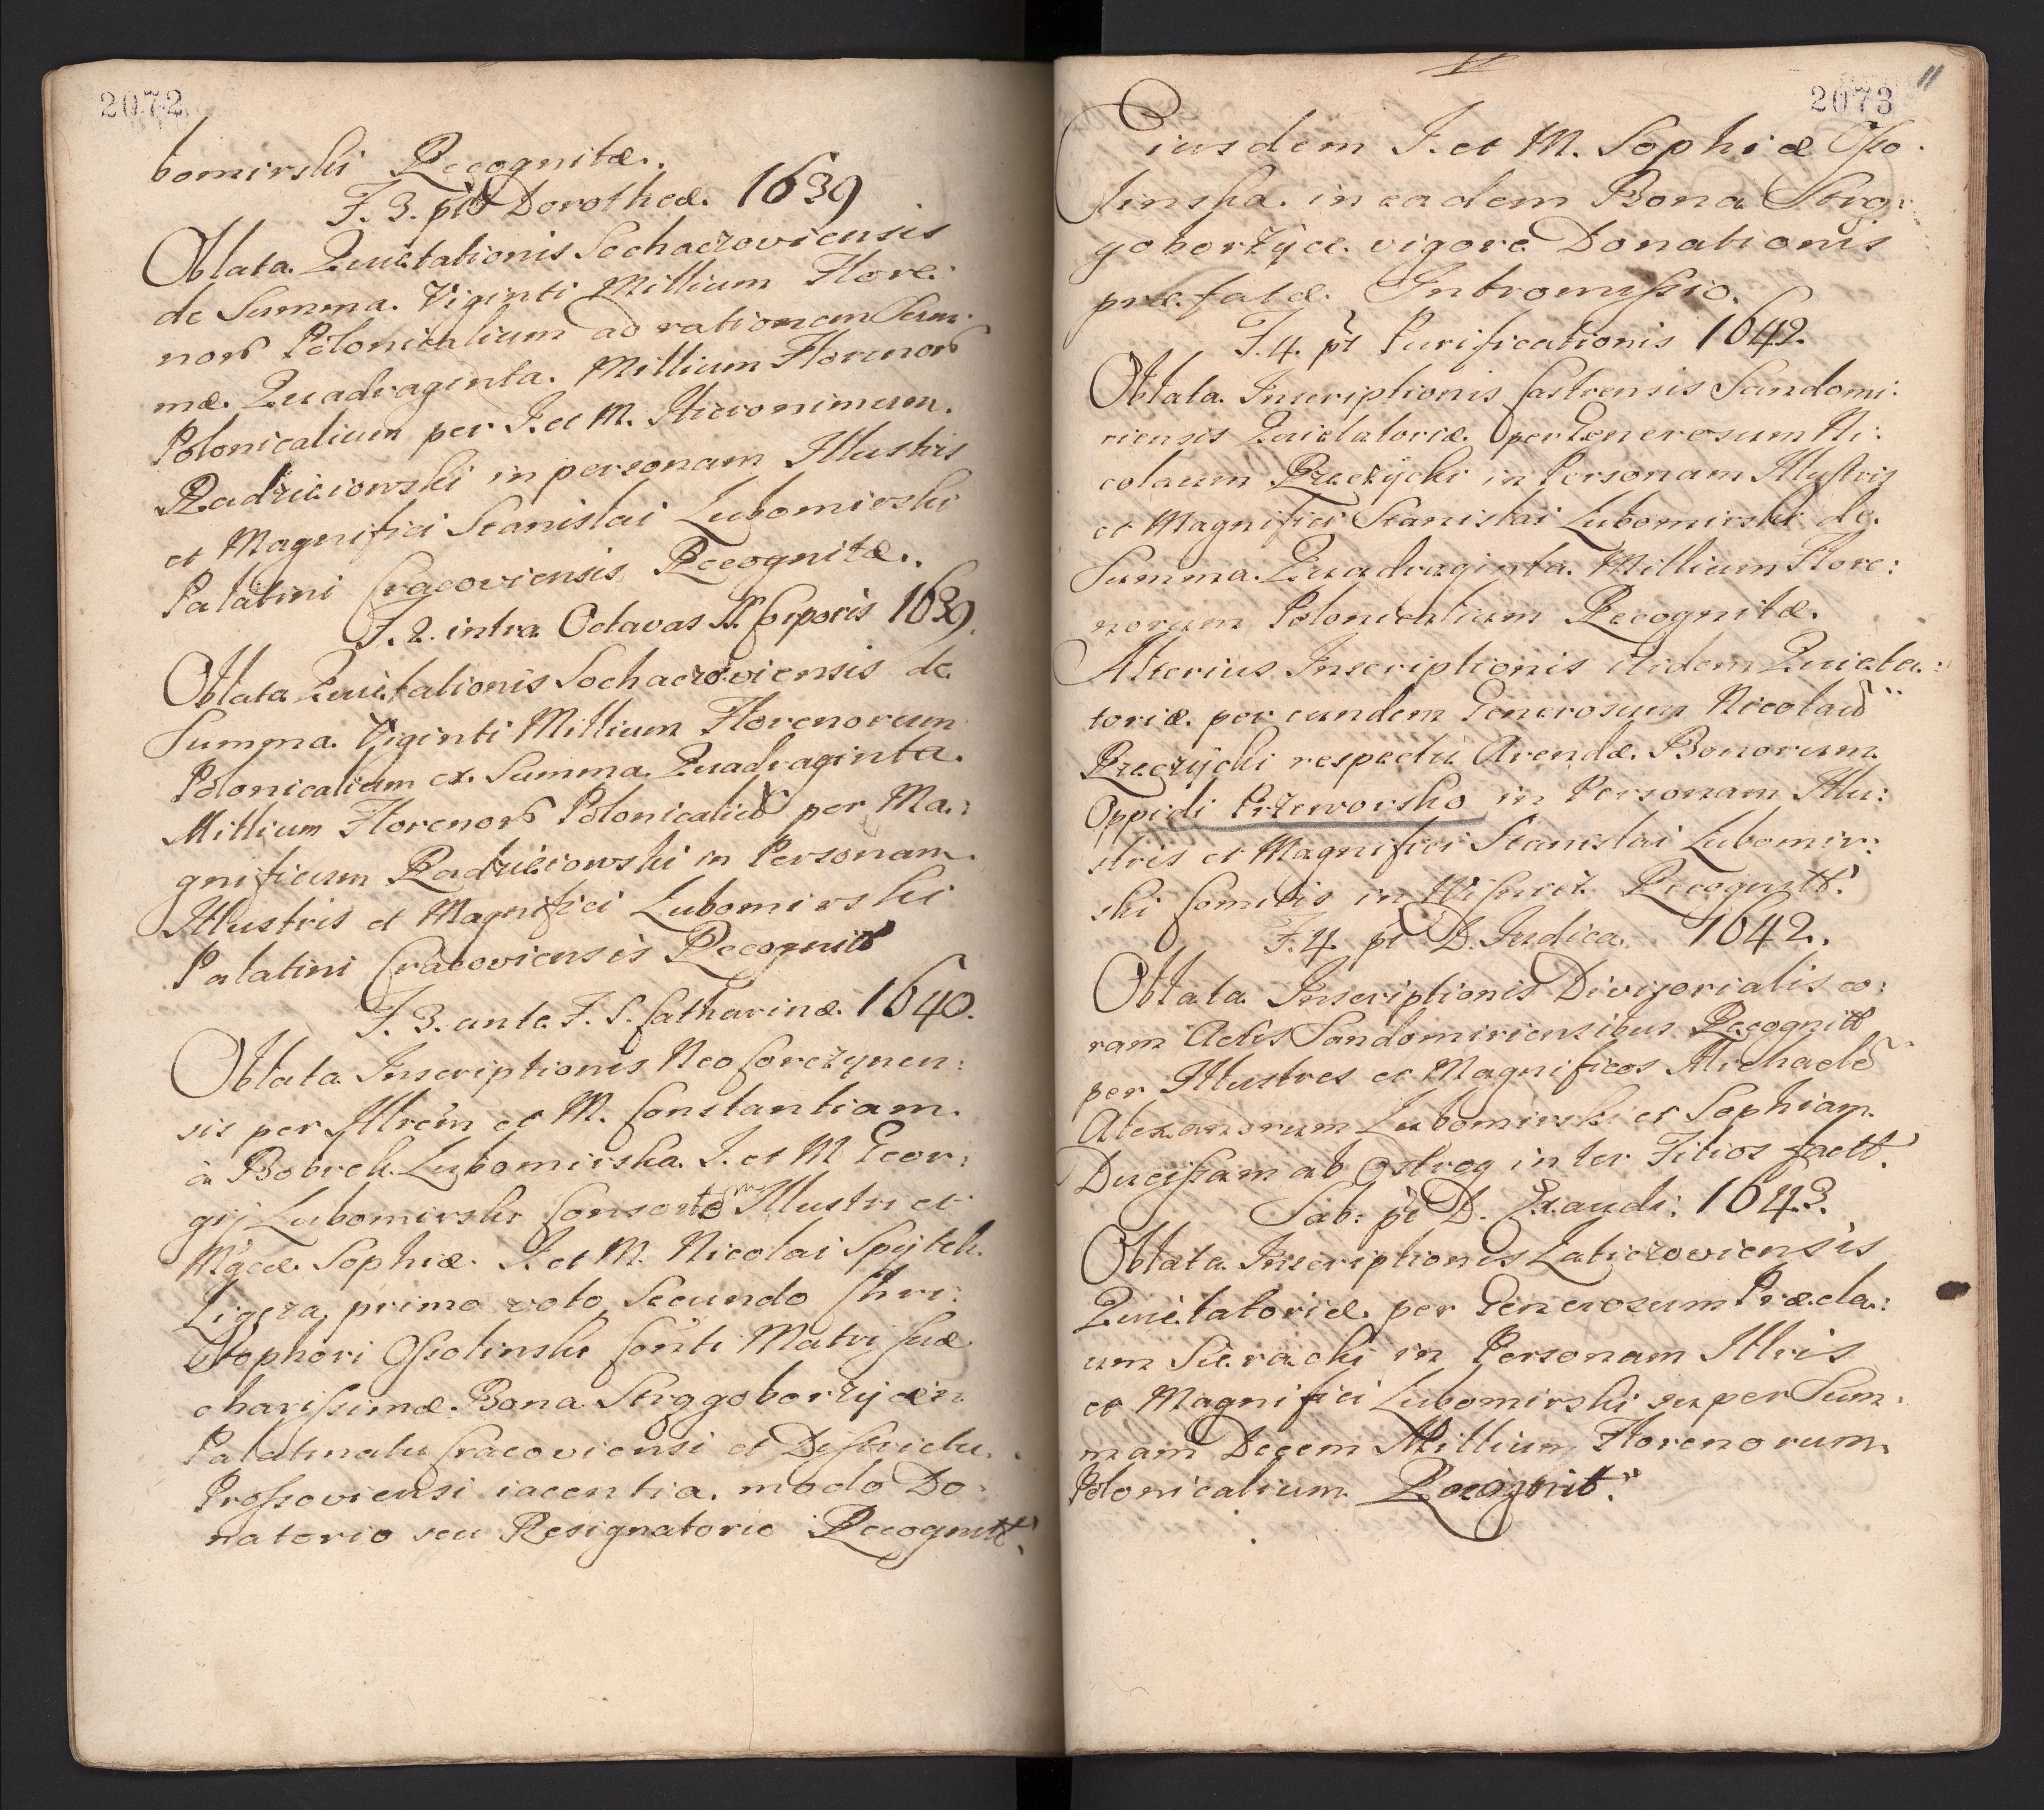 2072
bomirski Recognitæ.
F. 3. pit Dorotheæ. 1639
Oblata Quietationis Sochaczoviensis
de Summa Viginti Millium Flore:
nors Polonicalium ad rationem Sum:
mæ Quadraginta Millium Florenors
Polonicalium per I. et M. Hieronimum
Radzieiowski in personam Illustris
et Magnifici Stanislai Lubomirski
Palatini Cracoviensis Recognitæ.
F. 2. intra Octavas SS. Corporis 1639.
Oblata Quietationis Sochaczoviensis de
Summa Viginti Millium Florenorum
Polonicalium ex Summa Quadraginta
Millium Florenors Polonicaliū per Ma:
gnificum Radzieiowski in Personam
Illustris et Magnifici Lubomirski
Palatini Cracoviensis Recognitt
F. 3. ante F. S. Catharinæ 1640.
Oblata Inscriptionis Neo Corczynen:
sis per Illrem et M. Constantiam
à Bobrek Lubomirska I. et M Geor:
gij Lubomirski Consorte Illustri et
Mgcæ Sophiæ I. et M. Nicolai Spÿtek
Ligęza primo voto Secundo Chri:
stophori Ossolinski Conti Matri suæ
charissimæ Bona Strggoborzÿce in
Palatinatu Cracoviensi et Districtu
Prossoviensi iacentia modo Do:
natorio seu Resignatorio Recognitt.
2073
11
Eiusdem I. et M. Sophiæ Osso:
linska in eadem Bona Strg:
goborzÿce vigore Donationis
præfatæ Intromissio.
F. 4. pt Purificationis 1642.
Oblata Inscriptionis Castrensis Sandomi:
riensis Quietatoriæ per Generosum Ni:
colaum Rzeczÿcki in Personam Illustris
et Magnifici Stanislai Lubomirski de
Summa Quadraginta Millium Flore:
norum Polonicalium Recognitæ.
Alterius Inscriptionis itidem Quieta:
toriæ per eundem Generosum Nicolaū
Rzeczÿcki respectu Arendæ Bonorum
Oppidi Przeworsko in Personam Illu:
stris et Magnifici Stanislai Lubomir:
ski Comitis in Wisnicz Recognitt.
F. 4. pt D. Iudica. 1642.
Oblata Inscriptionis Divisorialis co:
ram Actis Sandomiriensibus Recognitt
per Illustres et Magnificos Michaelē
Alexandrum Lubomirski et Sophiam
Ducissam ab Ostrog inter Filios factt.
Sab: pt D. Exaudi: 1643.
Oblata Inscriptionis Laticzoviensis
Quietatoriæ per Generosum Præcla:
um Sieracki in Personam Illris
et Magnifici Lubomirski super Sum:
mam Decem Millium Florenorum
Polonicalium Recognitt.